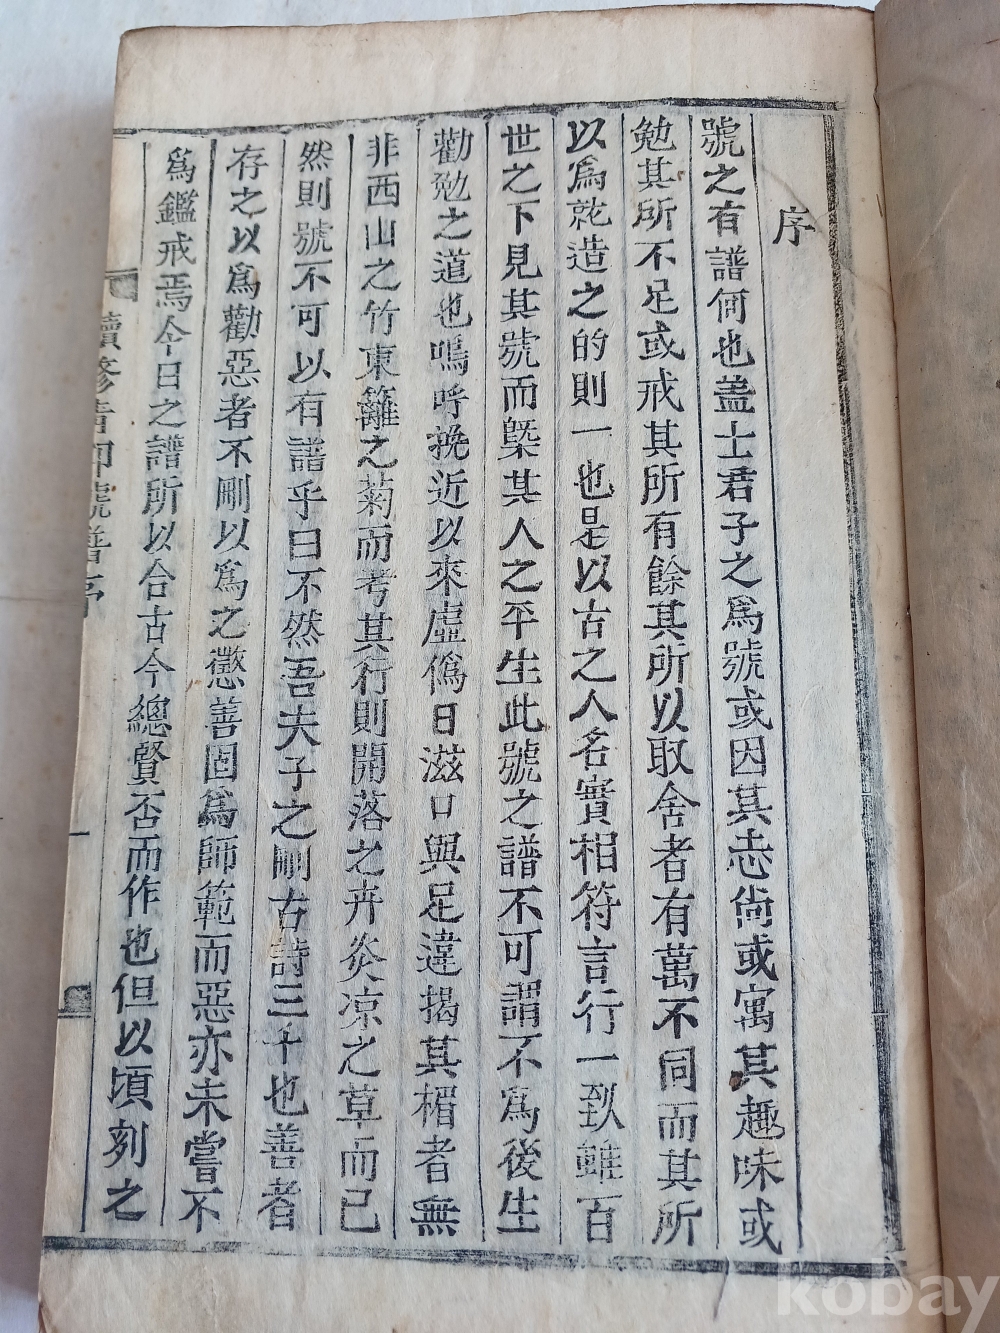 序
號之有譜何也盖士君子之爲號或因其志尙或寓其趣味或
勉其所不足或戒其所有餘其所以取舍者有萬不同而其所
以爲就造之的則一也是以古之人名實相符言行一致雖百
世之下見其號而槩其人之平生此號之譜不可謂不爲後生
勸勉之道也嗚呼挽近以來虛僞日滋口與足違揭其楣者無
非西山之竹東籬之菊而考其行則開落之卉炎凉之草而已
然則號不可以有譜乎曰不然吾夫子之刪古詩三千也善者
存之以爲勸惡者不刪以爲之懲善固爲師範而惡亦未嘗不
爲鑑戒焉今日之譜所以合古今總賢否而作也但以頃刻之
續修 號譜序
一
kobay